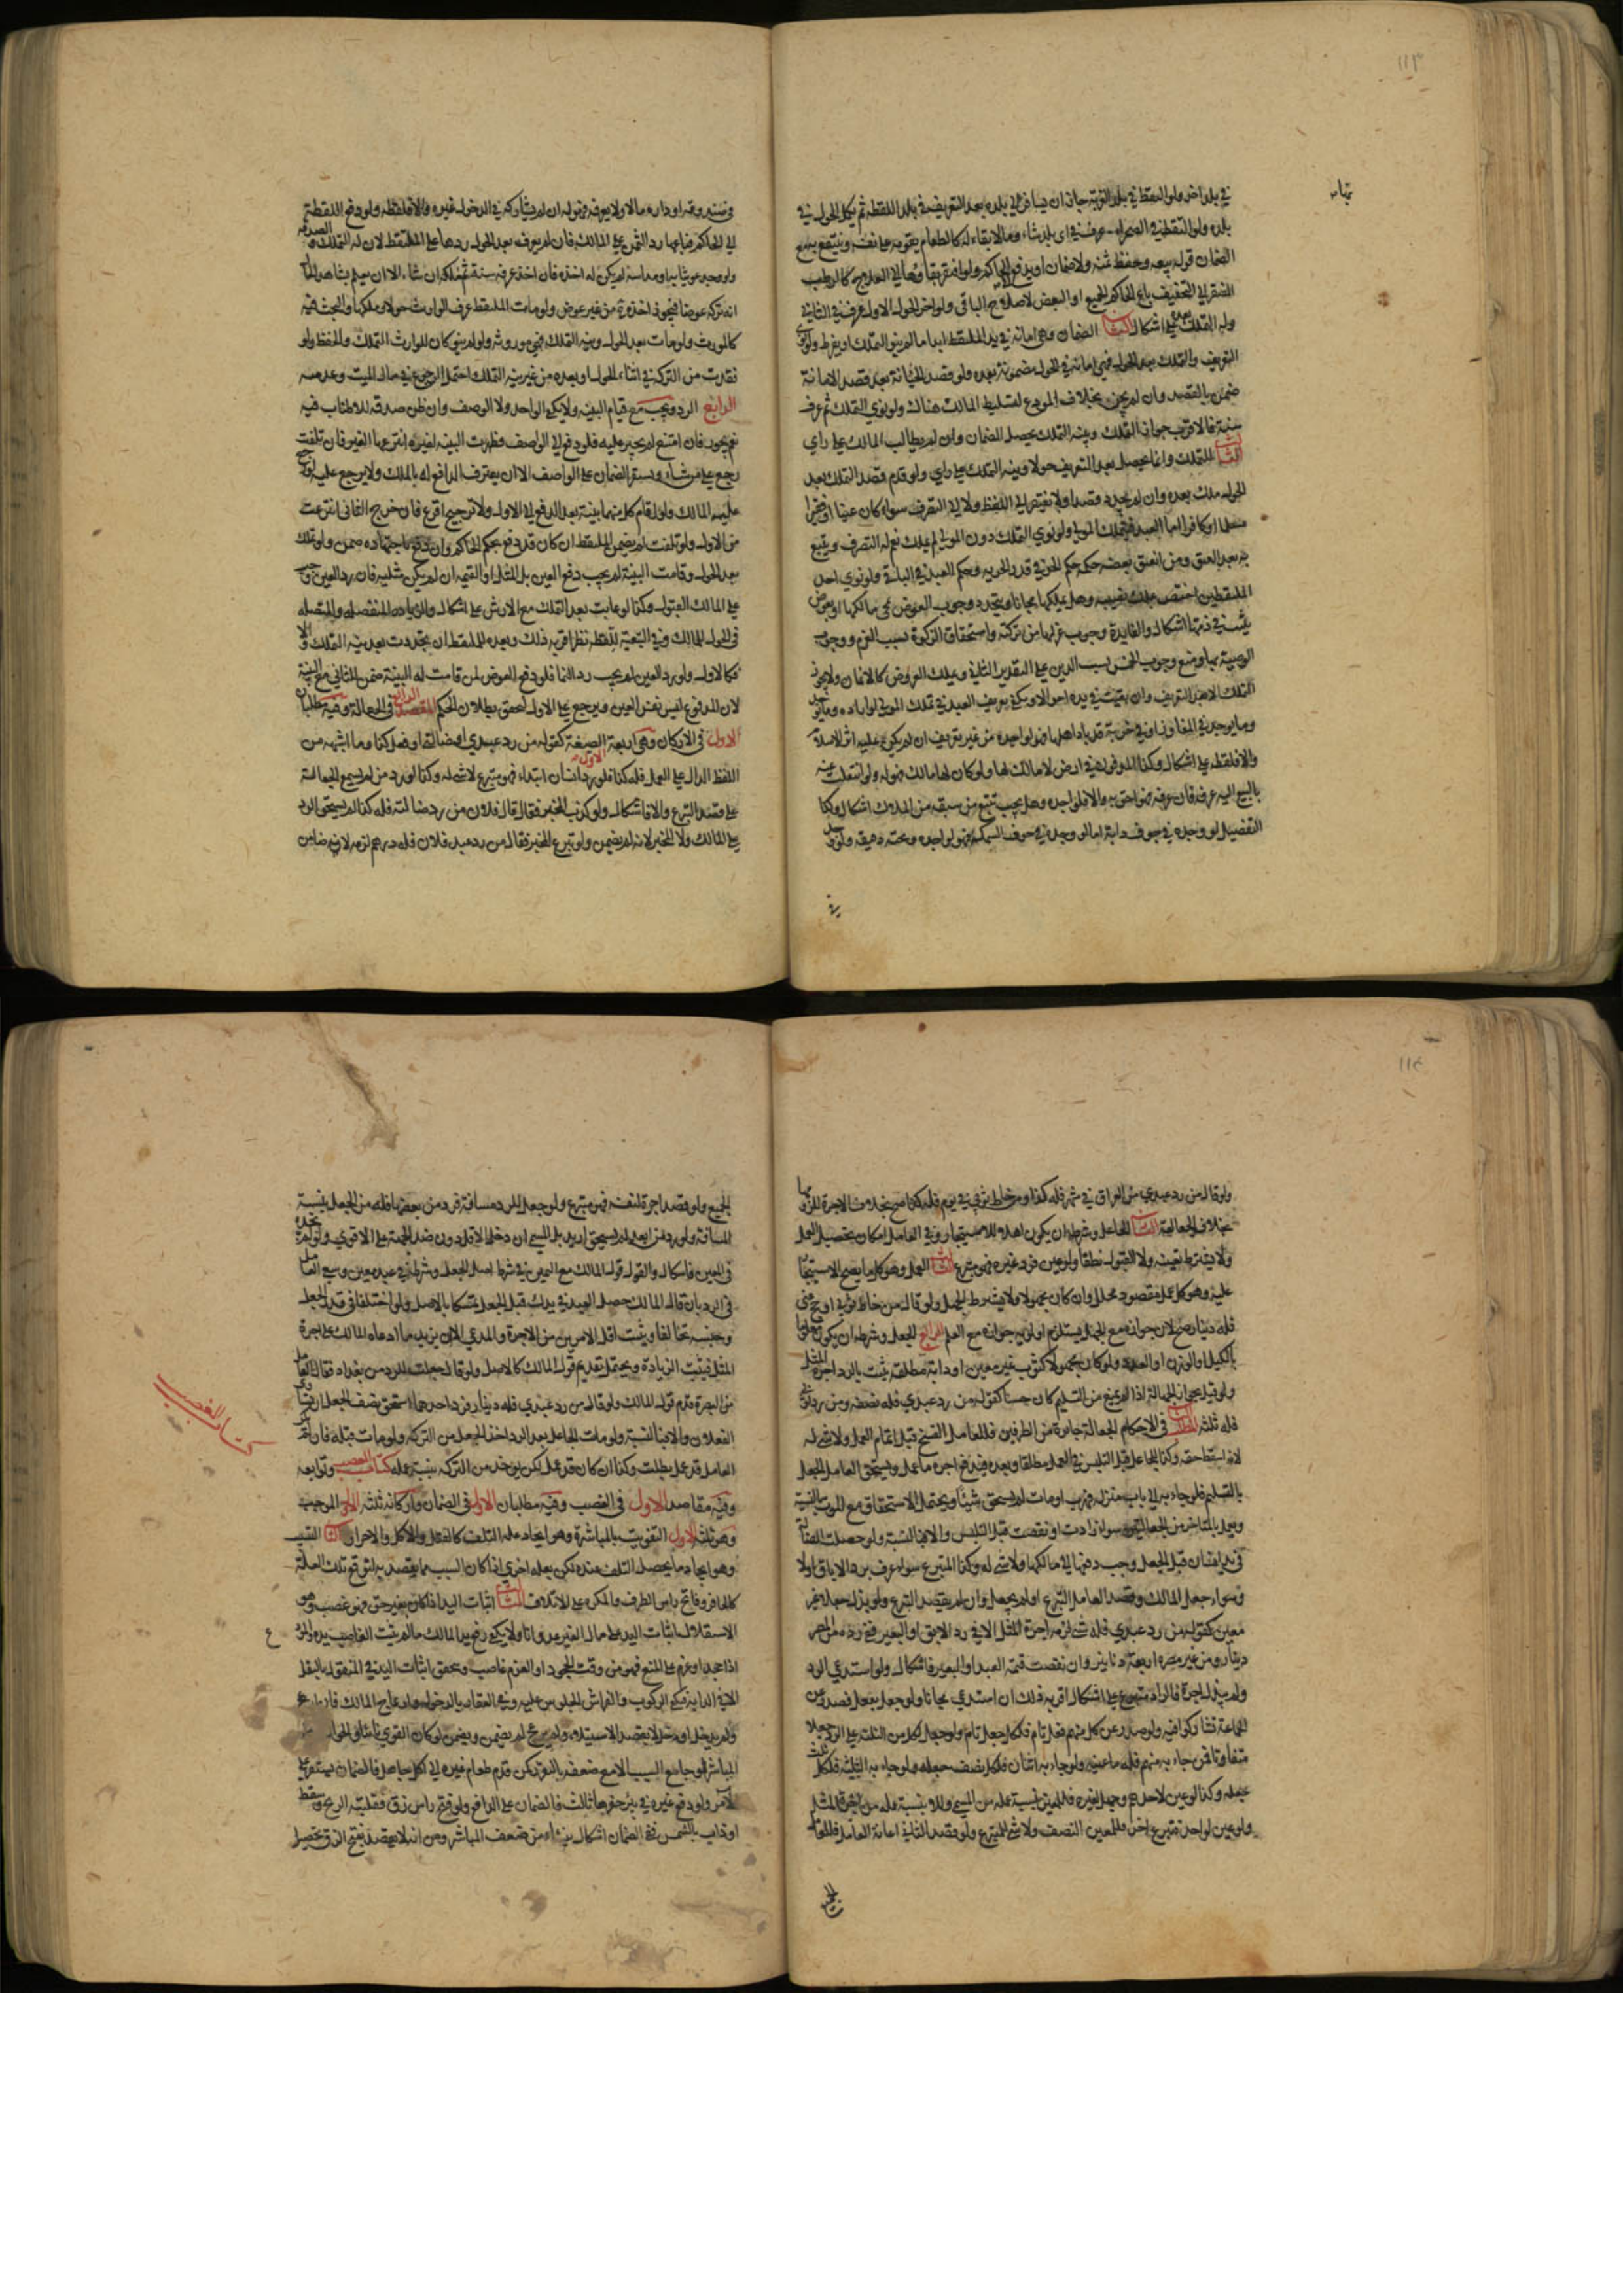 ١١٣
في بلد اخر ولو التقط في بلد الغربة جاز ان يسافر الى بلده بعد التعريف في بلد اللقطة ثم يكمل الحول في
بلده ولو التقط في الصحراء عرف في اي بلد شاء وما لا بقاء له كالطعام يقومه على نفسه وينتفع به مع
الضمان وله بيعه وحفظ ثمنه ولا ضمان او يدفع الى الحاكم ولو افتقر بقاؤها الى العلاج كالرطب
المفتقر الى التجفيف باع الحاكم الجميع او البعض لاصلاح الباقي ولو اخر الحول الاول عرف في الثاني
وله التملك بعده على اشكال الثاني الضمان وهي امانة في يد الملتقط ابدا ما لم ينو التملك او يفرط ولو نوى
التعريف والتملك بعد الحول فهي امانة في الحول مضمونة بعده ولو قصد الخيانة بعد قصد الامانة
ضمن بالقصد وان لم يخن بخلاف المودع لتسليط المالك هناك ولو نوى التملك ثم عرف
سنة فالاقرب جواز التملك وبنية التملك يحصل الضمان وان لم يطالب المالك على راي
الثالث التملك وانما يحصل بعد التعريف حولا ونية التملك على راي ولو قدم قصد التملك بعد
الحول ملك بعده وان لم يجدد قصدا ولا يفتقر الى اللفظ ولا الى التصرف سواء كان غنيا او فقيرا
مسلما او كافرا اما العبد فيتملك المولى ولو نوى التملك دون المولى لم يملك نعم له التصرف ويتبع
به بعد العتق ومن انعتق بعضه حكمه حكم الحر في قدر الحرية وحكم العبد في الباقي ولو نوى احد
الملتقطين اختص بملك نصيبه وهل يملكها مجانا ويتجدد وجوب العوض بمجي مالكها او بعوض
يثبت في ذمته اشكال والفايدة وجوب عزلها من تركته واستحقاق الزكوة بسبب الغرم ووجوب
الوصية بها ومنع وجوب الخمس بسبب الدين على التقدير الثاني ويملك العروض كالاثمان ولا يجوز
التملك الا بعد التعريف وان بقيت في يده احوالا ويكفي تعريف العبد في تملك المولى لو اراده وما يوجد
وما يوجد في المفاوز او في خربة قد باد اهلها فهو لواجده من غير تعريف ان لم يكن عليه اثر الاسلام
والا فلقطة على اشكال وكذا المدفون في ارض لا مالك لها ولو كان لها مالك فهو له ولو انتقلت عنه
بالبيع اليه عرفه فان عرفه فهو احق به والا فلواجده وهل يجب تتبع من سبقه من الملاك اشكال وكذا
التفصيل لو وجده في جوف دابة اما لو وجده في جوف السمكة فهو لواجده ولو وجد
في
في صندوقه او داره مالا ولا يعرفه فهو له ان لم يشاركه في الدخول غيره والا فلقطة ولو دفع اللقطة
الى الحاكم فباعها رد الثمن على المالك فان لم يعرفه بعد الحول ردها على الملتقط لان له التملك والصدقة
ولو وجد عوض ثيابه او مداسه لم يكن له اخذه فان اخذ عرفه سنة ثم تملكه ان شاء الا ان يعلم بشاهد الحال
انه تركه عوضا فيجوز اخذه من غير عوض ولو مات الملتقط عرف الوارث حولا وملكها والبحث فيه
كالمورث ولو مات بعد الحول ونية التملك فهي موروثة ولو لم ينو كان للوارث التملك والحفظ ولو
فقدت من التركة في اثناء الحول او بعده من غير نية التملك احتمل الرجوع في مال الميت وعدمه
الرابع الرد ويجب مع قيام البينة ولا يكفي الواحد ولا الوصف وان ظن صدقه للاطناب فيه
نعم يجوز فان امتنع لم يجبر عليه فلو دفع الى الواصف فظهرت البينة لغيره انتزعها الغير فان تلفت
رجع على من شاء ويستقر الضمان على الواصف الا ان يعترف الدافع له بالملك ولا يرجع عليه لو رجع
عليه المالك ولو اقام كل منهما بينة بعد الدفع الى الاول ولا ترجيح اقرع فان خرج الثاني انتزعت
من الاول ولو تلفت لم يضمن الملتقط ان كان قد دفع بحكم الحاكم وان دفع باجتهاده ضمن ولو تملك
بعد الحول وقامت البينة لم يجب دفع العين بل المثل او القيمة ان لم يكن مثليه فان رد العين وجب
على المالك القبول وكذا لو عابت بعد التملك مع الارش على اشكال والزيادة المنفصلة والمتصلة
في الحول للمالك وفي التبعية للقطة نظر اقربه ذلك وبعده للملتقط ان تجددت بعد نية التملك والا
فكالاول ولو رد العين لم يجب رد النما فلو دفع العوض لمن قامت له البينة ضمن للثاني مع البينة
لان المدفوع ليس نفس العين ويرجع على الاول لتحقق بطلان الحكم المقصد الرابع في الجعالة وفيه مطلبان
الاول في الاركان وهي اربعة الاول الصيغة كقوله من رد عبدي او ضالتي او فعل كذا وما اشبهه من
اللفظ الدال على العمل فله كذا فلو رد انسان ابتداء فهو متبرع لا شي له وكذا لو رد من لم يسمع الجعالة
على قصد التبرع والا فاشكال ولو كذب المخبر فقال قال فلان من رد ضالته فله كذا لم يستحق الراد
على المالك ولا المخبر لانه لم يضمن ولو تبرع المخبر فقال من رد عبد فلان فله درهم لزمه لانه ضامن
١١٤
ولو قال من رد عبدي من العراق في شهر فله كذا او من خاط ثوبي في يوم فله كذا صح بخلاف الاجرة للزومها
بخلاف الجعالة الثاني الجاعل وشرطه ان يكون اهلا للاستيجار وفي العامل امكان تحصيل العمل
ولا يشترط تعيينه ولا القبول نطقا ولو عين فرد غيره فهو متبرع الثالث العمل وهو كل ما يصح الاستيجار
عليه وهو كل عمل مقصود محلل وان كان مجهولا ولا يشترط الجهل ولو قال من خاط ثوبي او حج عني
فله دينار صح لان جوازه مع الجهل يستلزم اولوية جوازه مع العلم الرابع الجعل وشرطه ان يكون معلوما
بالكيل او الوزن او العدد ولو كان مجهولا كثوب غير معين او دابة مطلقة يثبت بالرد اجرة المثل
ولو قيل بجواز الجهالة اذا لم يمنع من التسليم كان حسنا كقوله من رد عبدي فله نصفه ومن رد ثوبي
فله ثلثه المطلب الثاني في الاحكام الجعالة جايزة من الطرفين فللعامل الفسخ قبل اتمام العمل ولا شي له
لانه اسقط حقه وكذا للجاعل قبل التلبس في العمل مطلقا وبعده فيدفع اجرة ما عمل ويستحق العامل الجعل
بالتسليم فلو جاء به الى باب منزله فهرب او مات لم يستحق شيئا ويحتمل الاستحقاق مع الموت بالنسبة
ويعمل بالمتاخر من الجعالتين سواء زادت او نقصت قبل التلبس والا فبالنسبة ولو حصلت الضالة
في يد انسان قبل الجعل وجب دفعها الى مالكها ولا شي له وكذا المتبرع سواء عرف برد الاباق او لا
وسواء جعل المالك وقصد العامل التبرع او لم يجعل وان لم يقصد التبرع ولو بذل جعلا غير
معين كقوله من رد عبدي فله شي لزمه اجرة المثل الا في رد الابق او البعير ففي رده من المصر
دينار ومن غير مصره اربعة دنانير وان نقصت قيمة العبد او البعير فاشكال ولو استدعى الرد
ولم يبذل اجرة فالراد متبرع على اشكال اقربه ذلك ان استدعى مجانا ولو جعل بفعل فصدر عن
جماعة تشاركوا فيه ولو صدر عن كل منهم فعل تام فلكل جعل تام ولو جعل لكل من الثلثة على الرد جعلا
متفاوتا فمن جاء به منهم فله ما عينه ولو جاء به اثنان فلكل نصف جعله ولو جاء به الثلثة فلكل ثلث
جعله وكذا لو عين لاحدهم وجهل لغيره فللمعين بنسبة عمله من المسمى وللاخر بنسبة عمله من اجرة المثل
ولو عين لواحد فتبرع اخر فللمعين النصف ولا شي للمتبرع ولو قصد الثاني اعانة العامل فللعامل
الجميع ولو قصد اجرة لنفسه فهو متبرع ولو جعل للرد من مسافة فرد من بعضها فله من الجعل بنسبة
المسافة ولو رد من ابعد لم يستحق ازيد بل المسمى ان دخل الاقل دون ضد الجهة على الاقوى ولو لم يجده
في المعين فاشكال والقول قول المالك مع اليمين في شرط اصل الجعل وشرطه في عبد معين وسعي العامل
في الرد بان قال المالك حصل العبد في يدك قبل الجعل تمسكا بالاصل ولو اختلفا في قدر الجعل
وجنسه تحالفا ويثبت اقل الامرين من الاجرة والمدعى الا ان يزيد ما ادعاه المالك على اجرة
المثل فيثبت الزيادة ويحتمل تقديم قول المالك كالاصل ولو قال جعلت للرد من بغداد فقال العامل
من البصرة قدم قول المالك ولو قال من رد عبدي فله دينار فرد احدهما استحق نصف الجعل ان تساوى
الفعلان والا فبالنسبة ولو مات الجاعل بعد الرد اخذ الجعل من التركة ولو مات قبله فان لم يكن
العامل قد عمل بطلت وكذا ان كان قد عمل لكن يوخذ من التركة بنسبة عمله كتاب الغصب وتوابعه
وفيه مقاصد الاول في الغصب وفيه مطلبان الاول في الضمان واركانه ثلثة الاول الموجب
وهو ثلثة الاول التفويت بالمباشرة وهو ايجاد علة التلف كالقتل والاكل والاحراق الثاني التسبيب
وهو ايجاد ما يحصل التلف عنده لكن بعلة اخرى اذا كان السبب مما يقصد به لتوقع تلك العلة
كالحافر وفاتح راس الظرف والمكره على الاتلاف الثالث اثبات اليد اذا كان بغير حق فهو غصب وهو
الاستقلال باثبات اليد على مال الغير عدوانا ولا يكفي رفع يد المالك ما لم يثبت الغاصب يده
اذا جحد او عزم على المنع فهو من وقت الجحود او العزم غاصب ويتحقق اثبات اليد في المنقول بالنقل
الا في الدابة فيكفي الركوب والفراش الجلوس عليه وفي العقار بالدخول وازعاج المالك فان ازعج
ولم يدخل او دخل لا بقصد الاستيلاء ولم يزعج لم يضمن ويضمن لو كان القوي نائيا والحوالة على
المباشر لو جامع السبب الا مع ضعفه بالتغرير كمن قدم طعام غيره الى اكل جاهل فالضمان يستقر على
الآمر ولو دفع غيره في بئر حفرها ثالث فالضمان على الدافع ولو فتح راس زق فقلبته الريح وسقط
او ذاب بالشمس ففي الضمان اشكال ينشاء من ضعف المباشر ومن انه لا يقصد بفتح الزق تحصيل
كتاب الغصب